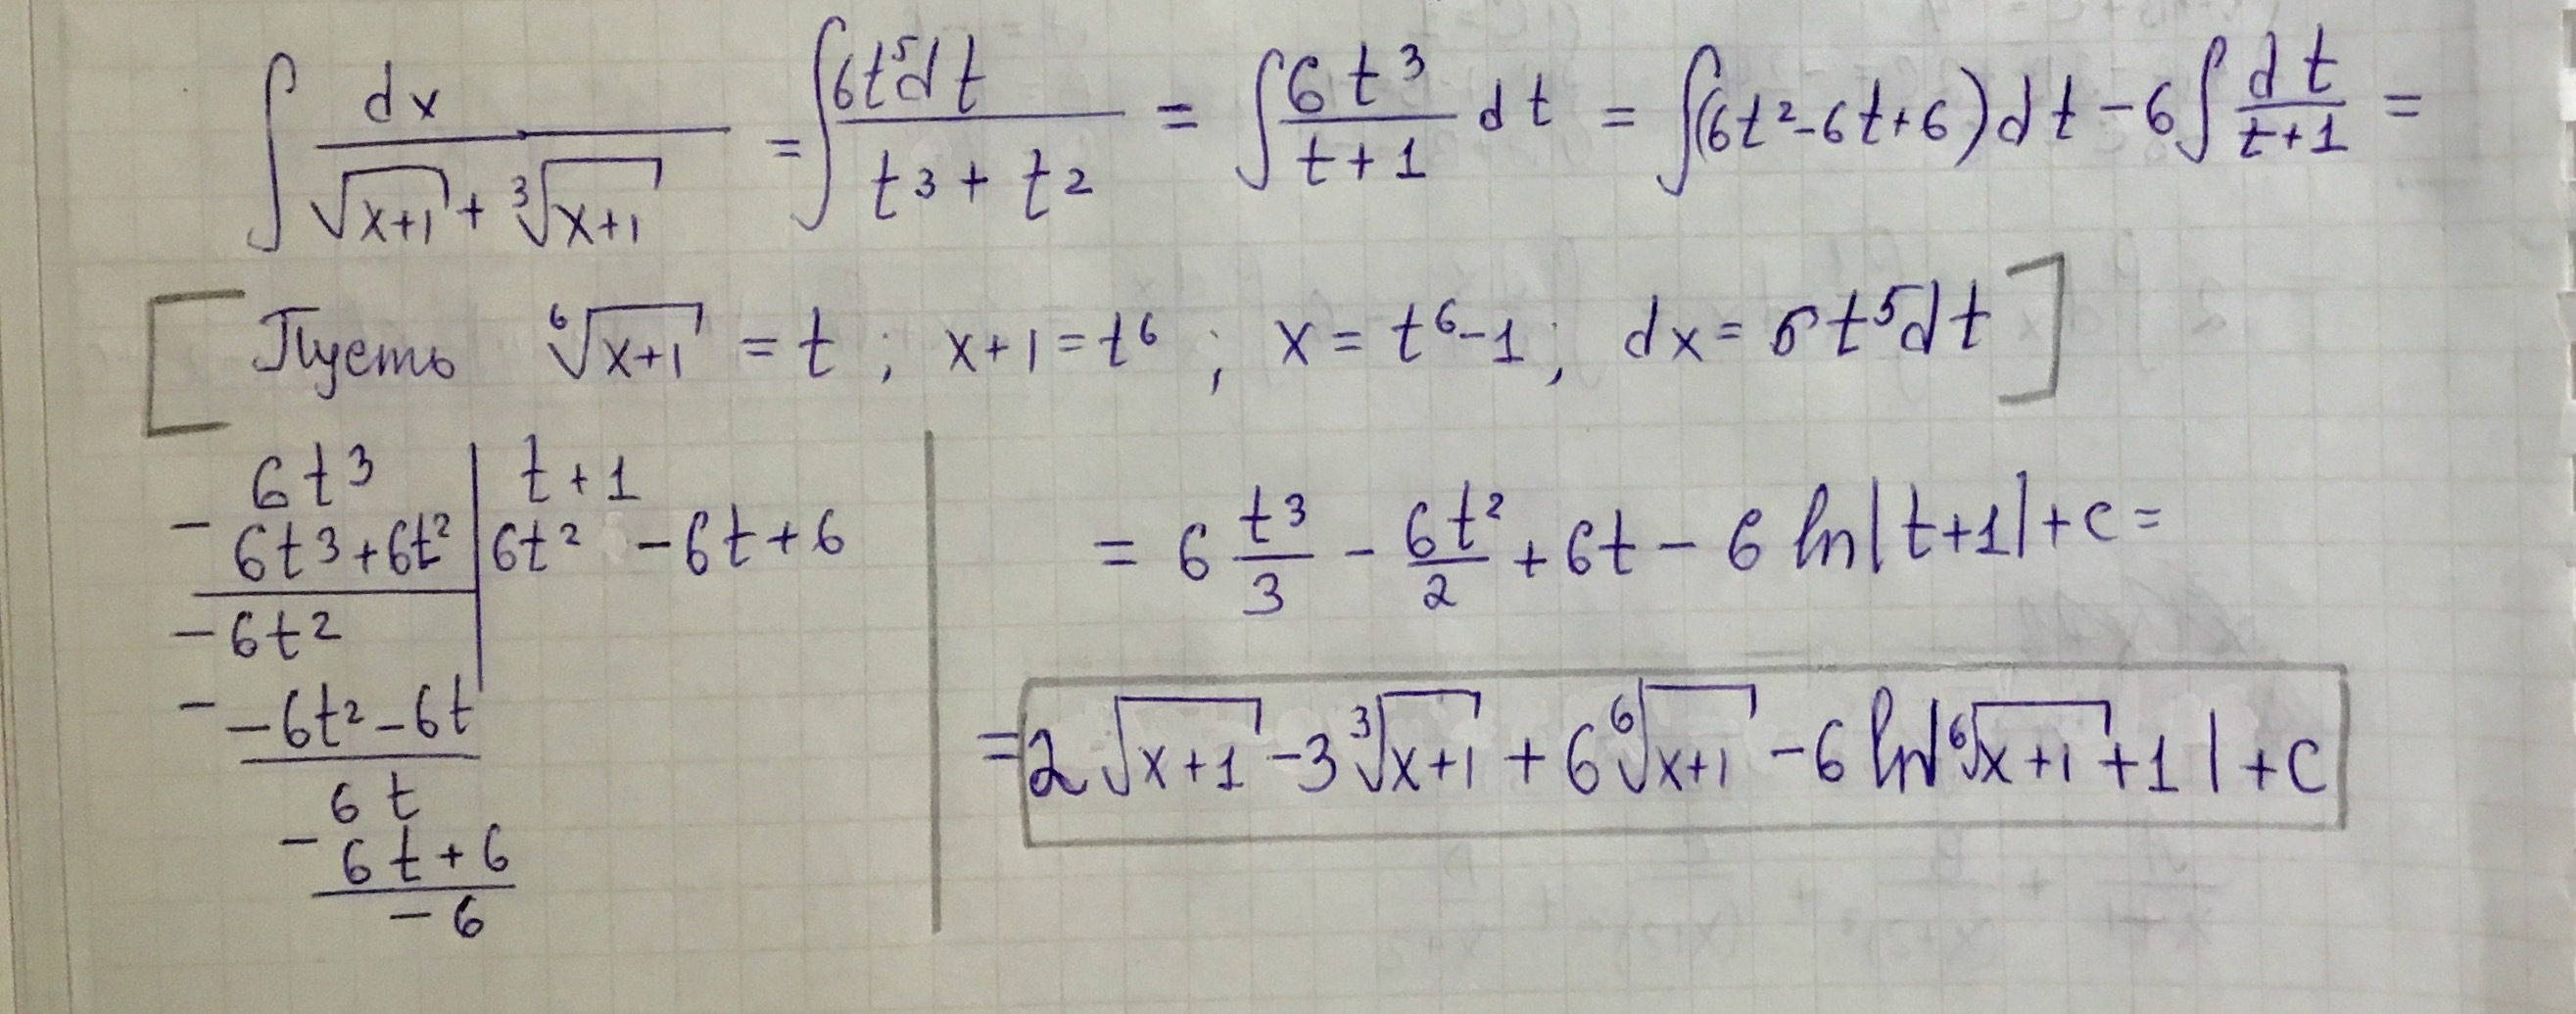 ∫ dx / (√(x+1) + ∛(x+1)) = ∫ 6t⁵dt / (t³ + t²) = ∫ 6t³/(t+1) dt = ∫(6t²-6t+6)dt - 6∫ dt/(t+1) =
[Пусть ⁶√(x+1) = t ; x+1 = t⁶ ; x = t⁶-1 ; dx = 6t⁵dt]
6t³ | t+1
- 6t³+6t² | 6t² -6t+6
-6t²
- -6t²-6t
6t
- 6t+6
-6
= 6 t³/3 - 6t²/2 + 6t - 6 ln|t+1| + c =
= 2√(x+1) - 3∛(x+1) + 6⁶√(x+1) - 6 ln|⁶√(x+1) + 1| + c